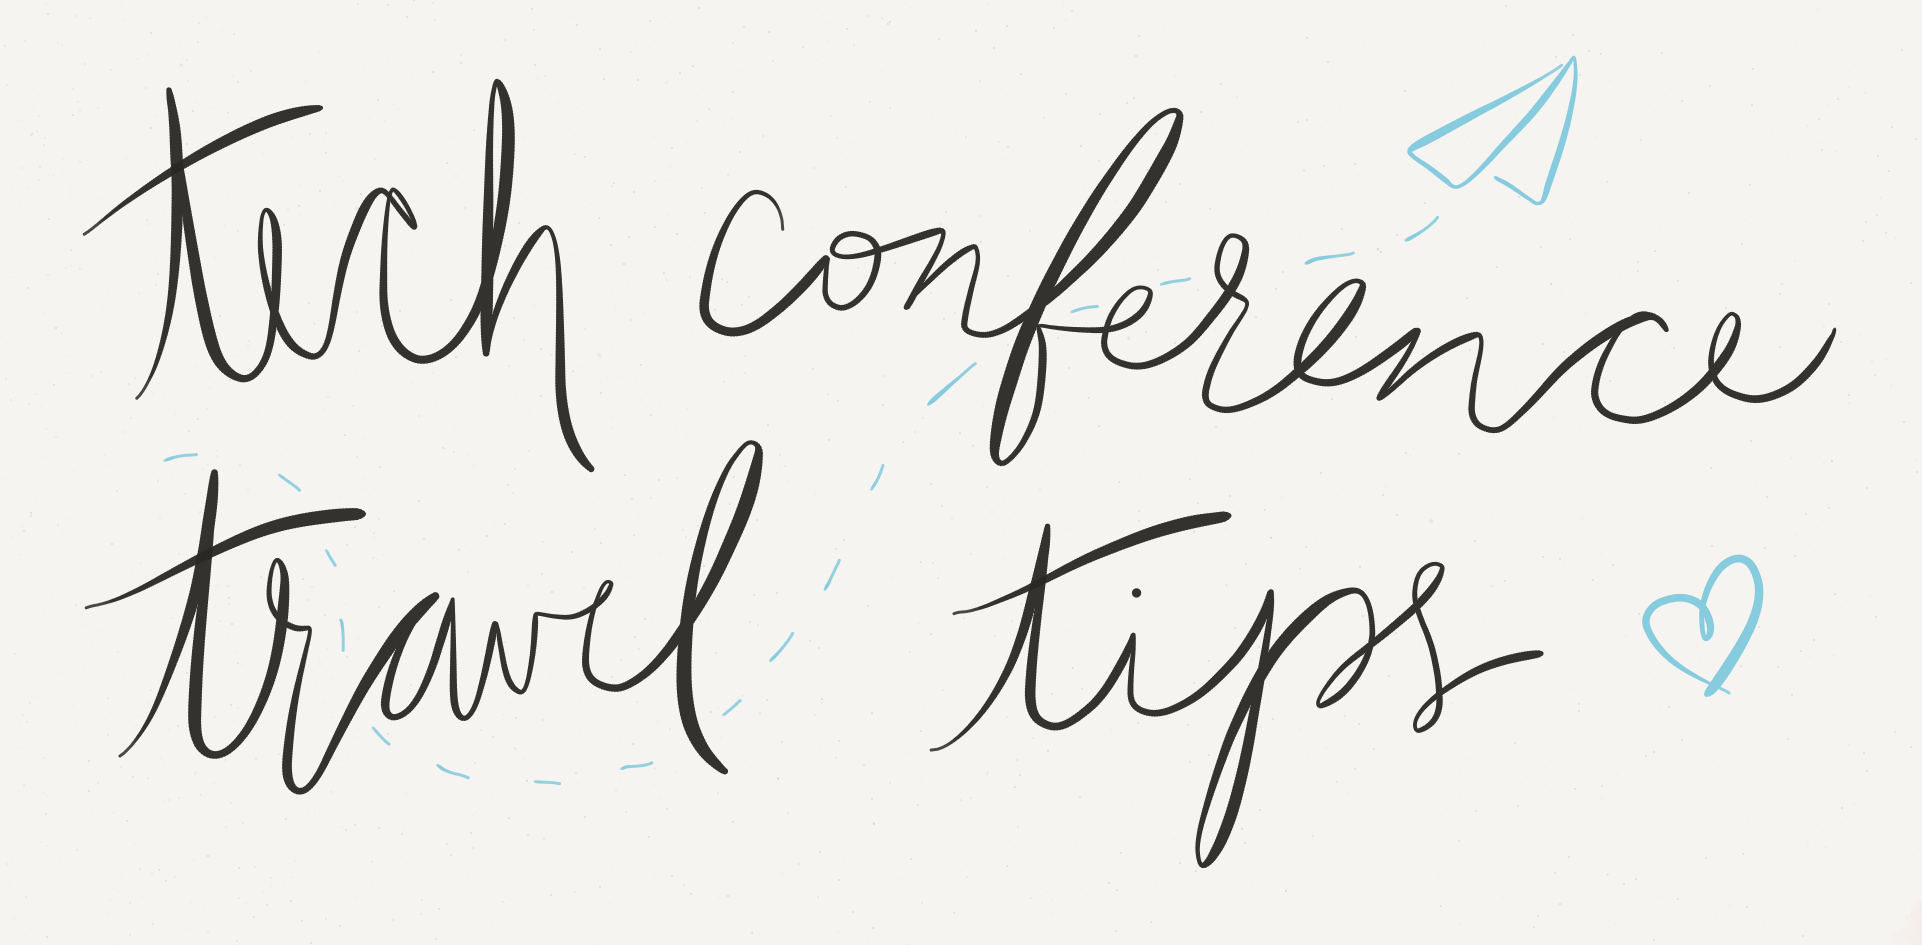 tech conference
travel tips